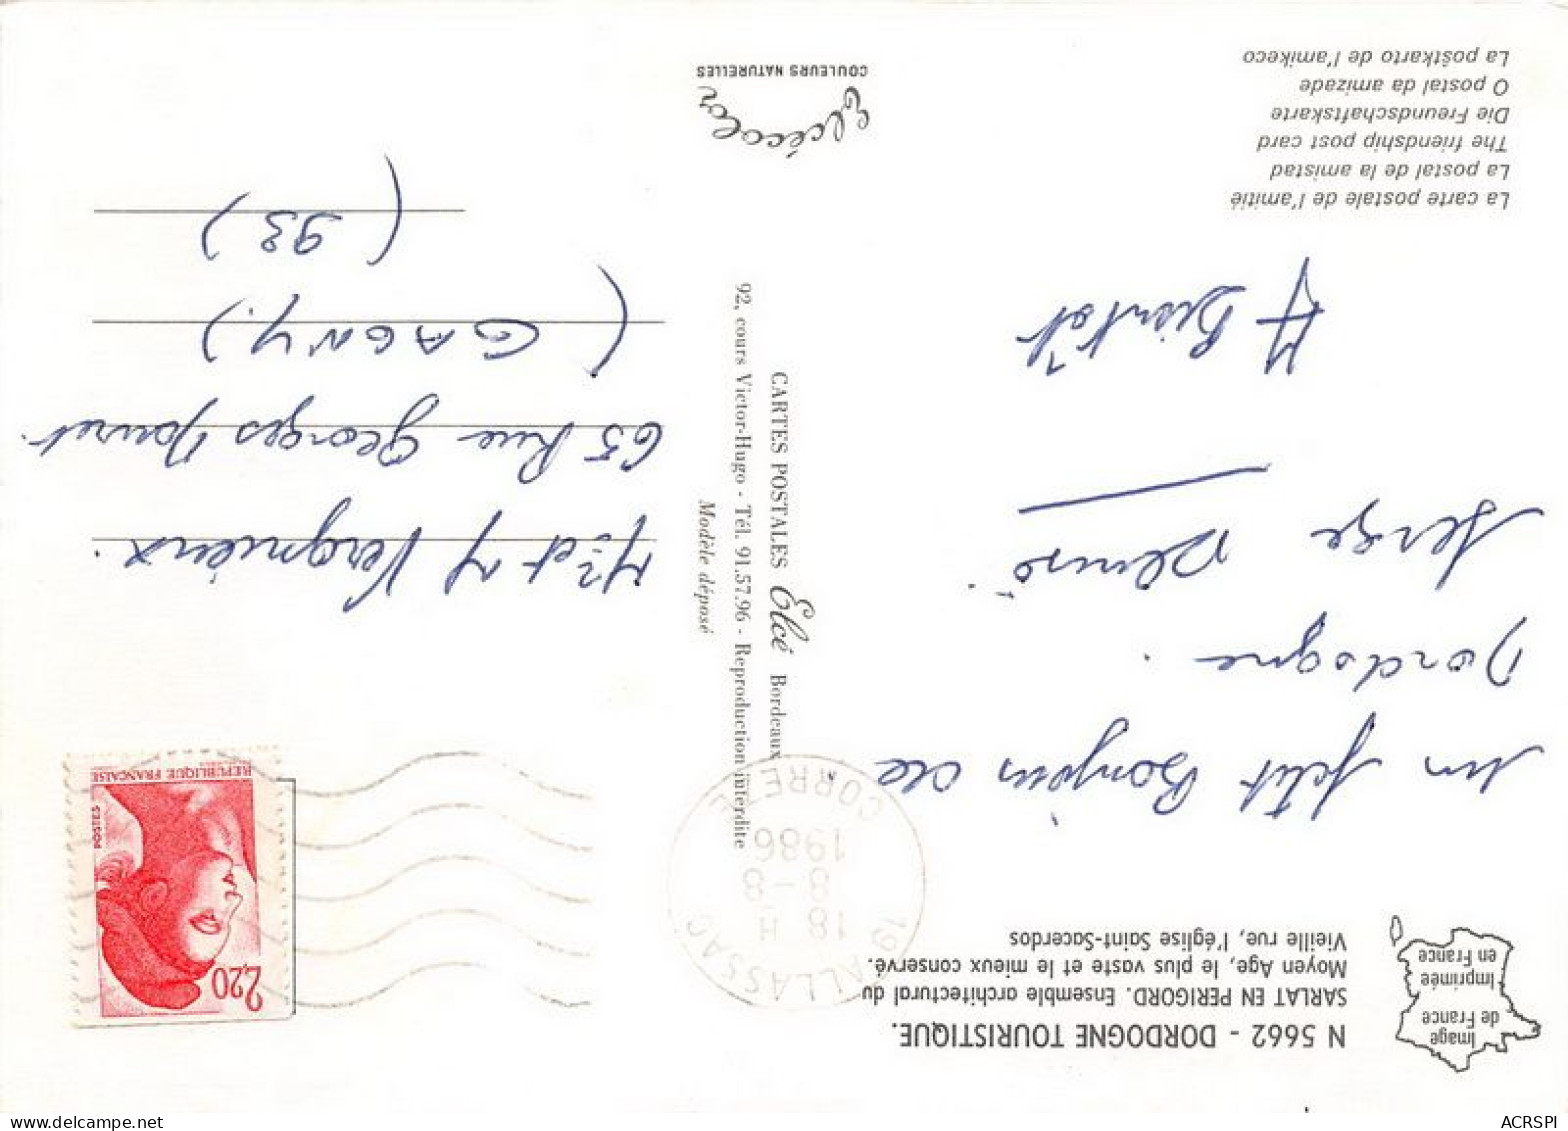 N 5662 - DORDOGNE TOURISTIQUE.
SARLAT EN PERIGORD. Ensemble architectural du
Moyen Age, le plus vaste et le mieux conservé.
Vieille rue, l'église Saint-Sacerdos
Image
de France
Imprimée
en France
un petit Bonjour de
Dordogne.
Serge
A Bientôt
La carte postale de l'amitié
La postal de la amistad
The friendship post card
Die Freundschaftskarte
O postal da amizade
La poŝtkarto de l'amikeco
CARTES POSTALES Elcé Bordeaux
92, cours Victor-Hugo - Tél. 91.57.96 - Reproduction interdite
Modèle déposé
Elcécolor
COULEURS NATURELLES
19 ALLASSAC
18 H
8 - 8
1986
CORREZE
2,20
POSTES
REPUBLIQUE FRANÇAISE
Mr et M Vergnieux.
65 Rue Georges
(GAGNY.)
(93)
ACRSPI